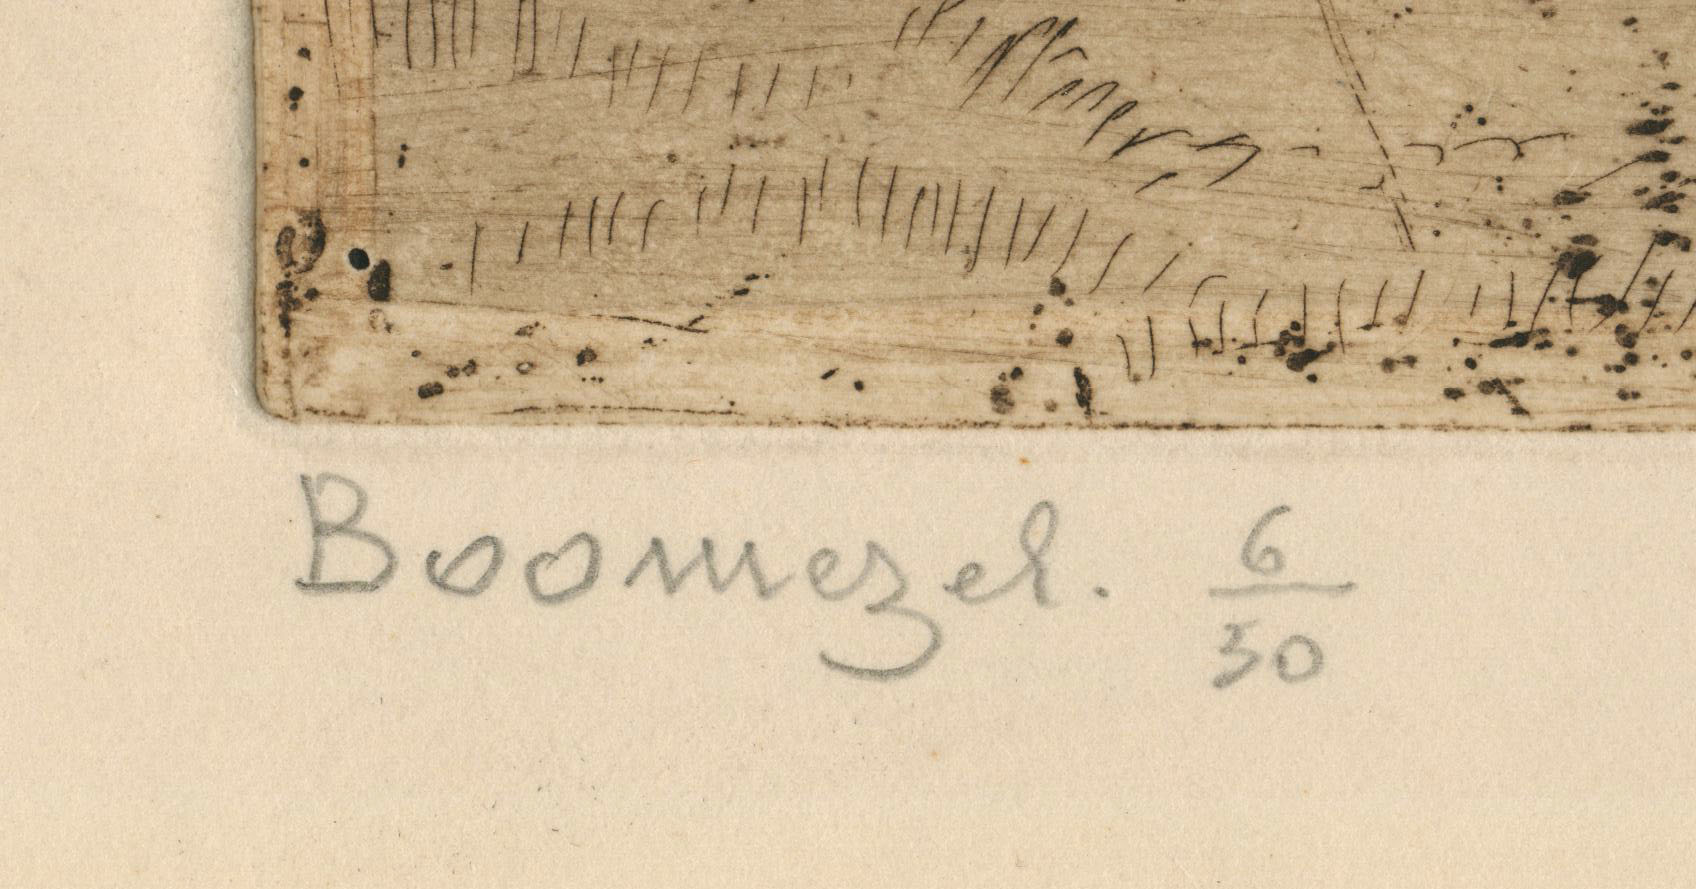 Boomezel. 6/50